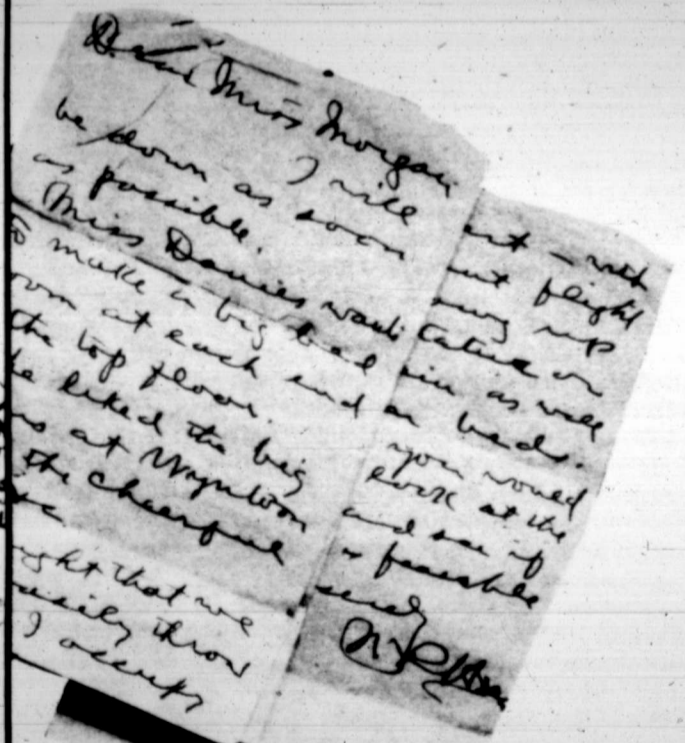 Dear Miss Morgan
I will
be down as soon
as possible.
Miss Davies wants
to make a big bed
room at each end
the top floor.
he liked the big
ns at Wyntoon
the cheerful
ught that we
easily throw
I occupy
out – with
ent flight
up
on
as well
beds.
you would
look at the
and see if
is feasible